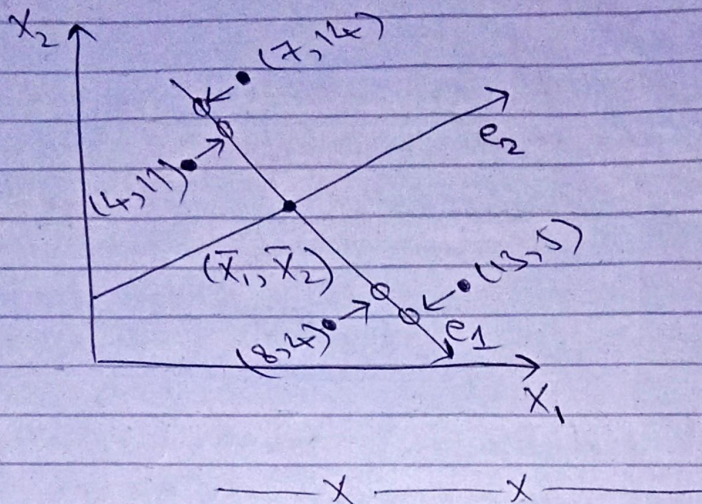 X₂
(7,14)
e₂
(4,11)
(X̄₁, X̄₂)
(13,5)
(8,4)
e1
X₁
X X